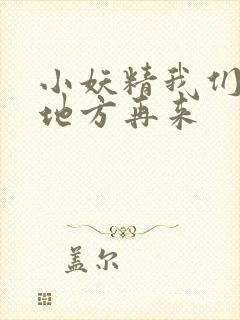 小妖精我们
地方再来
盖尔